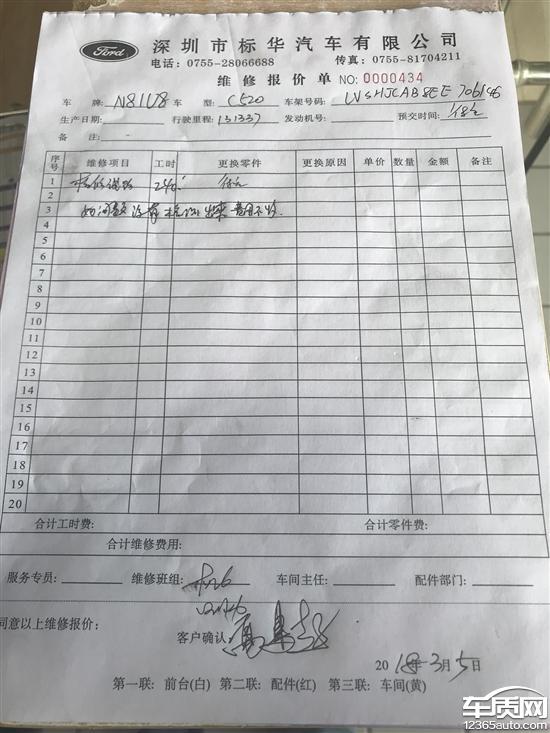 Ford 深圳市标华汽车有限公司
电话：0755-28066688 传真：0755-81704211
维修报价单 NO：0000434
车 牌：N81U8 车 型：C520 车架号码：LVSHJCAB8EE706146
生产日期： 行驶里程：131337 发动机号： 预交时间：待定
备 注：
序号 维修项目 工时 更换零件 更换原因 单价 数量 金额 备注
1 检修线路 240 待定
2
3
4
5
6
7
8
9
10
11
12
13
14
15
16
17
18
19
20
合计工时费： 合计零件费：
合计维修费用：
服务专员： 维修班组： 车间主任： 配件部门：
同意以上维修报价：
客户确认：
2018年3月5日
第一联：前台(白) 第二联：配件(红) 第三联：车间(黄)
车质网
12365auto.com